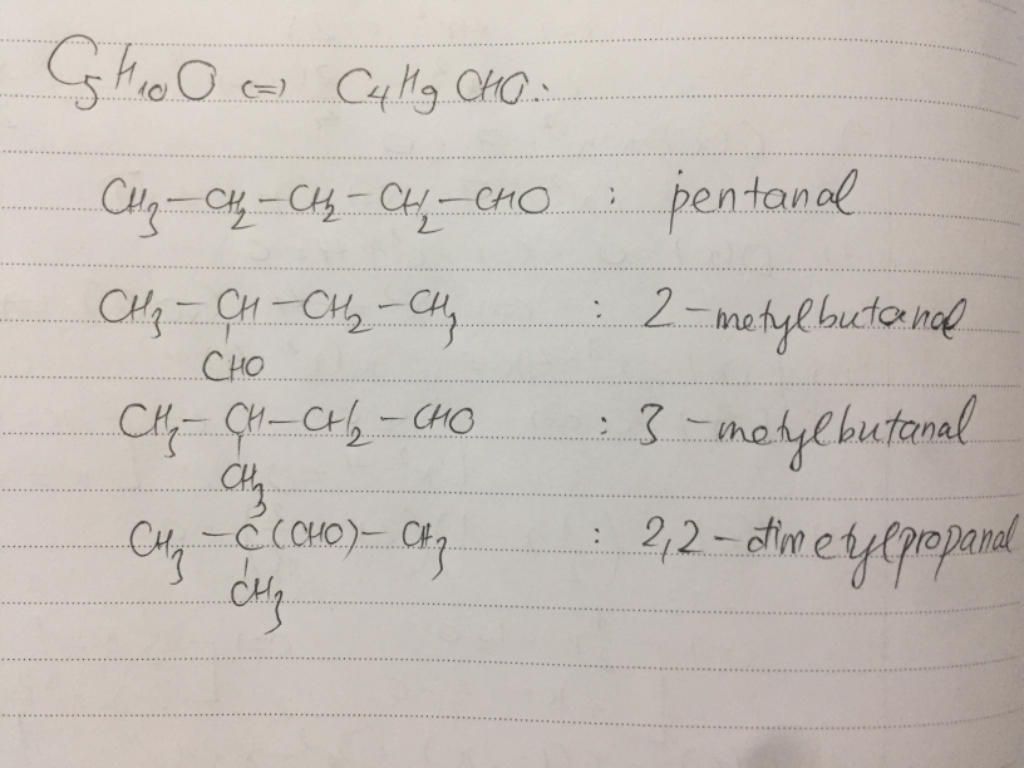 C5H10O <=> C4H9CHO:
CH3-CH2-CH2-CH2-CHO : pentanal
CH3-CH-CH2-CH3 : 2-metylbutanal
CHO
CH3-CH-CH2-CHO : 3-metylbutanal
CH3
CH3-C(CHO)-CH3 : 2,2-dimetylpropanal
CH3